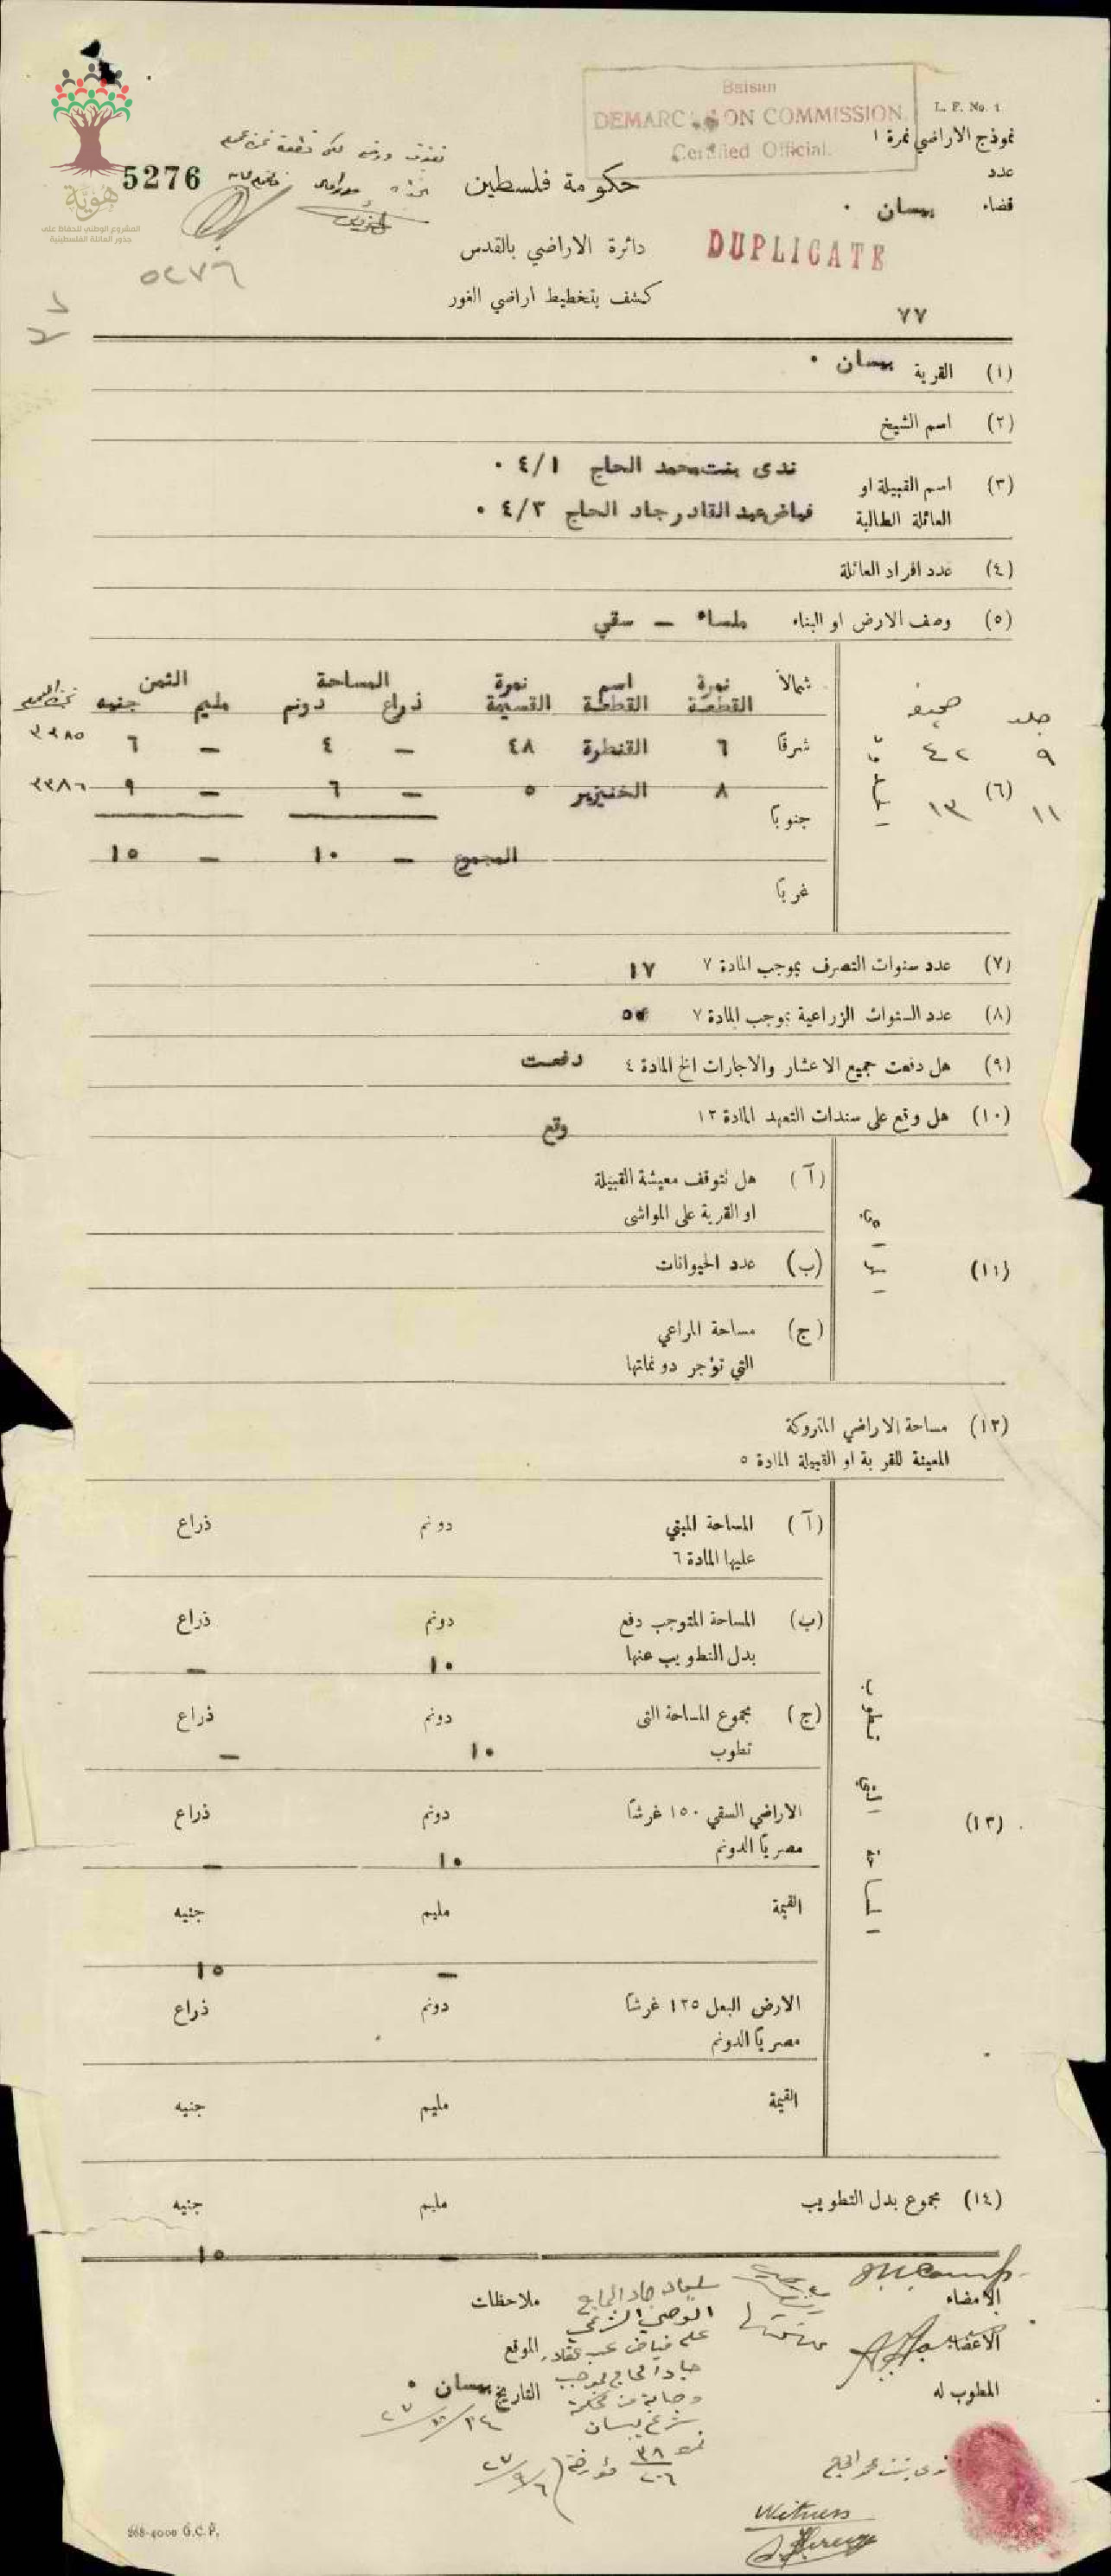 Baisan
DEMARC ON COMMISSION.
Certified Official.
L. F. No. 1
نموذج الاراضي نمرة ١
عدد
قضاء بيسان
هويّة
المشروع الوطني للحفاظ على
جذور العائلة الفلسطينية
5276
٥٢٧٦
حكومة فلسطين
دائرة الاراضي بالقدس
DUPLICATE
كشف بتخطيط اراضي الغور
٧٧
(١) القرية بيسان
(٢) اسم الشيخ
(٣) اسم القبيلة او العائلة الطالبة
ندى بنت محمد الحاج ٤/١
فياض عبد القادر جاد الحاج ٤/٣
(٤) عدد افراد العائلة
(٥) وصف الارض او البناء ملساء — سقي
جلد صحيفة
(٦)
شمالاً نمرة القطعة اسم القطعة نمرة القسيمة المساحة ذراع دونم الثمن مليم جنيه
٩ ٤٢ شرقاً ٦ القنطرة ٤٨ — ٤ — ٦ ٣٣٨٥
١١ ١٣ ٨ الخنيزير ٥ — ٦ — ٩ ٣٣٨٦
جنوباً
المجموع — ١٠ — ١٥
غرباً
(٧) عدد سنوات التصرف بموجب المادة ٧ ١٧
(٨) عدد السنوات الزراعية بموجب المادة ٧
(٩) هل دفعت جميع الاعشار والاجارات الخ المادة ٤ دفعت
(١٠) هل وقع على سندات التعهد المادة ١٢ وقع
(١١)
(آ) هل تتوقف معيشة القبيلة
او القرية على المواشى
(ب) عدد الحيوانات
(ج) مساحة المراعي
التي تؤجر دونماتها
(١٢) مساحة الاراضي المتروكة
المعينة للقرية او القبيلة المادة ٥
(١٣) المساحة التي تطوب
(آ) المساحة المبني دونم ذراع
عليها المادة ٦
(ب) المساحة المتوجب دفع دونم ذراع
بدل التطويب عنها ١٠ —
(ج) مجموع المساحة التى دونم ذراع
تطوب ١٠ —
الاراضي السقي ١٥٠ غرشاً دونم ذراع
مصرياً الدونم ١٠ —
القيمة مليم جنيه
— ١٥
الارض البعل ١٢٥ غرشاً دونم ذراع
مصرياً الدونم
القيمة مليم جنيه
(١٤) مجموع بدل التطويب مليم جنيه
— ١٥
الامضاء
الاعضاء
المطوب له
ملاحظات
جاد الحاج
الوصي الشرعي
على فياض عبد القادر
جاد الحاج بموجب
وصاية من محكمة
شرع بيسان
نمرة ٣٨/٢٠٦ مؤرخة ٢٧/٩/٦
الموقع بيسان
التاريخ
ندى بنت محمد الحاج
Witness
268-4000 G.C.P.